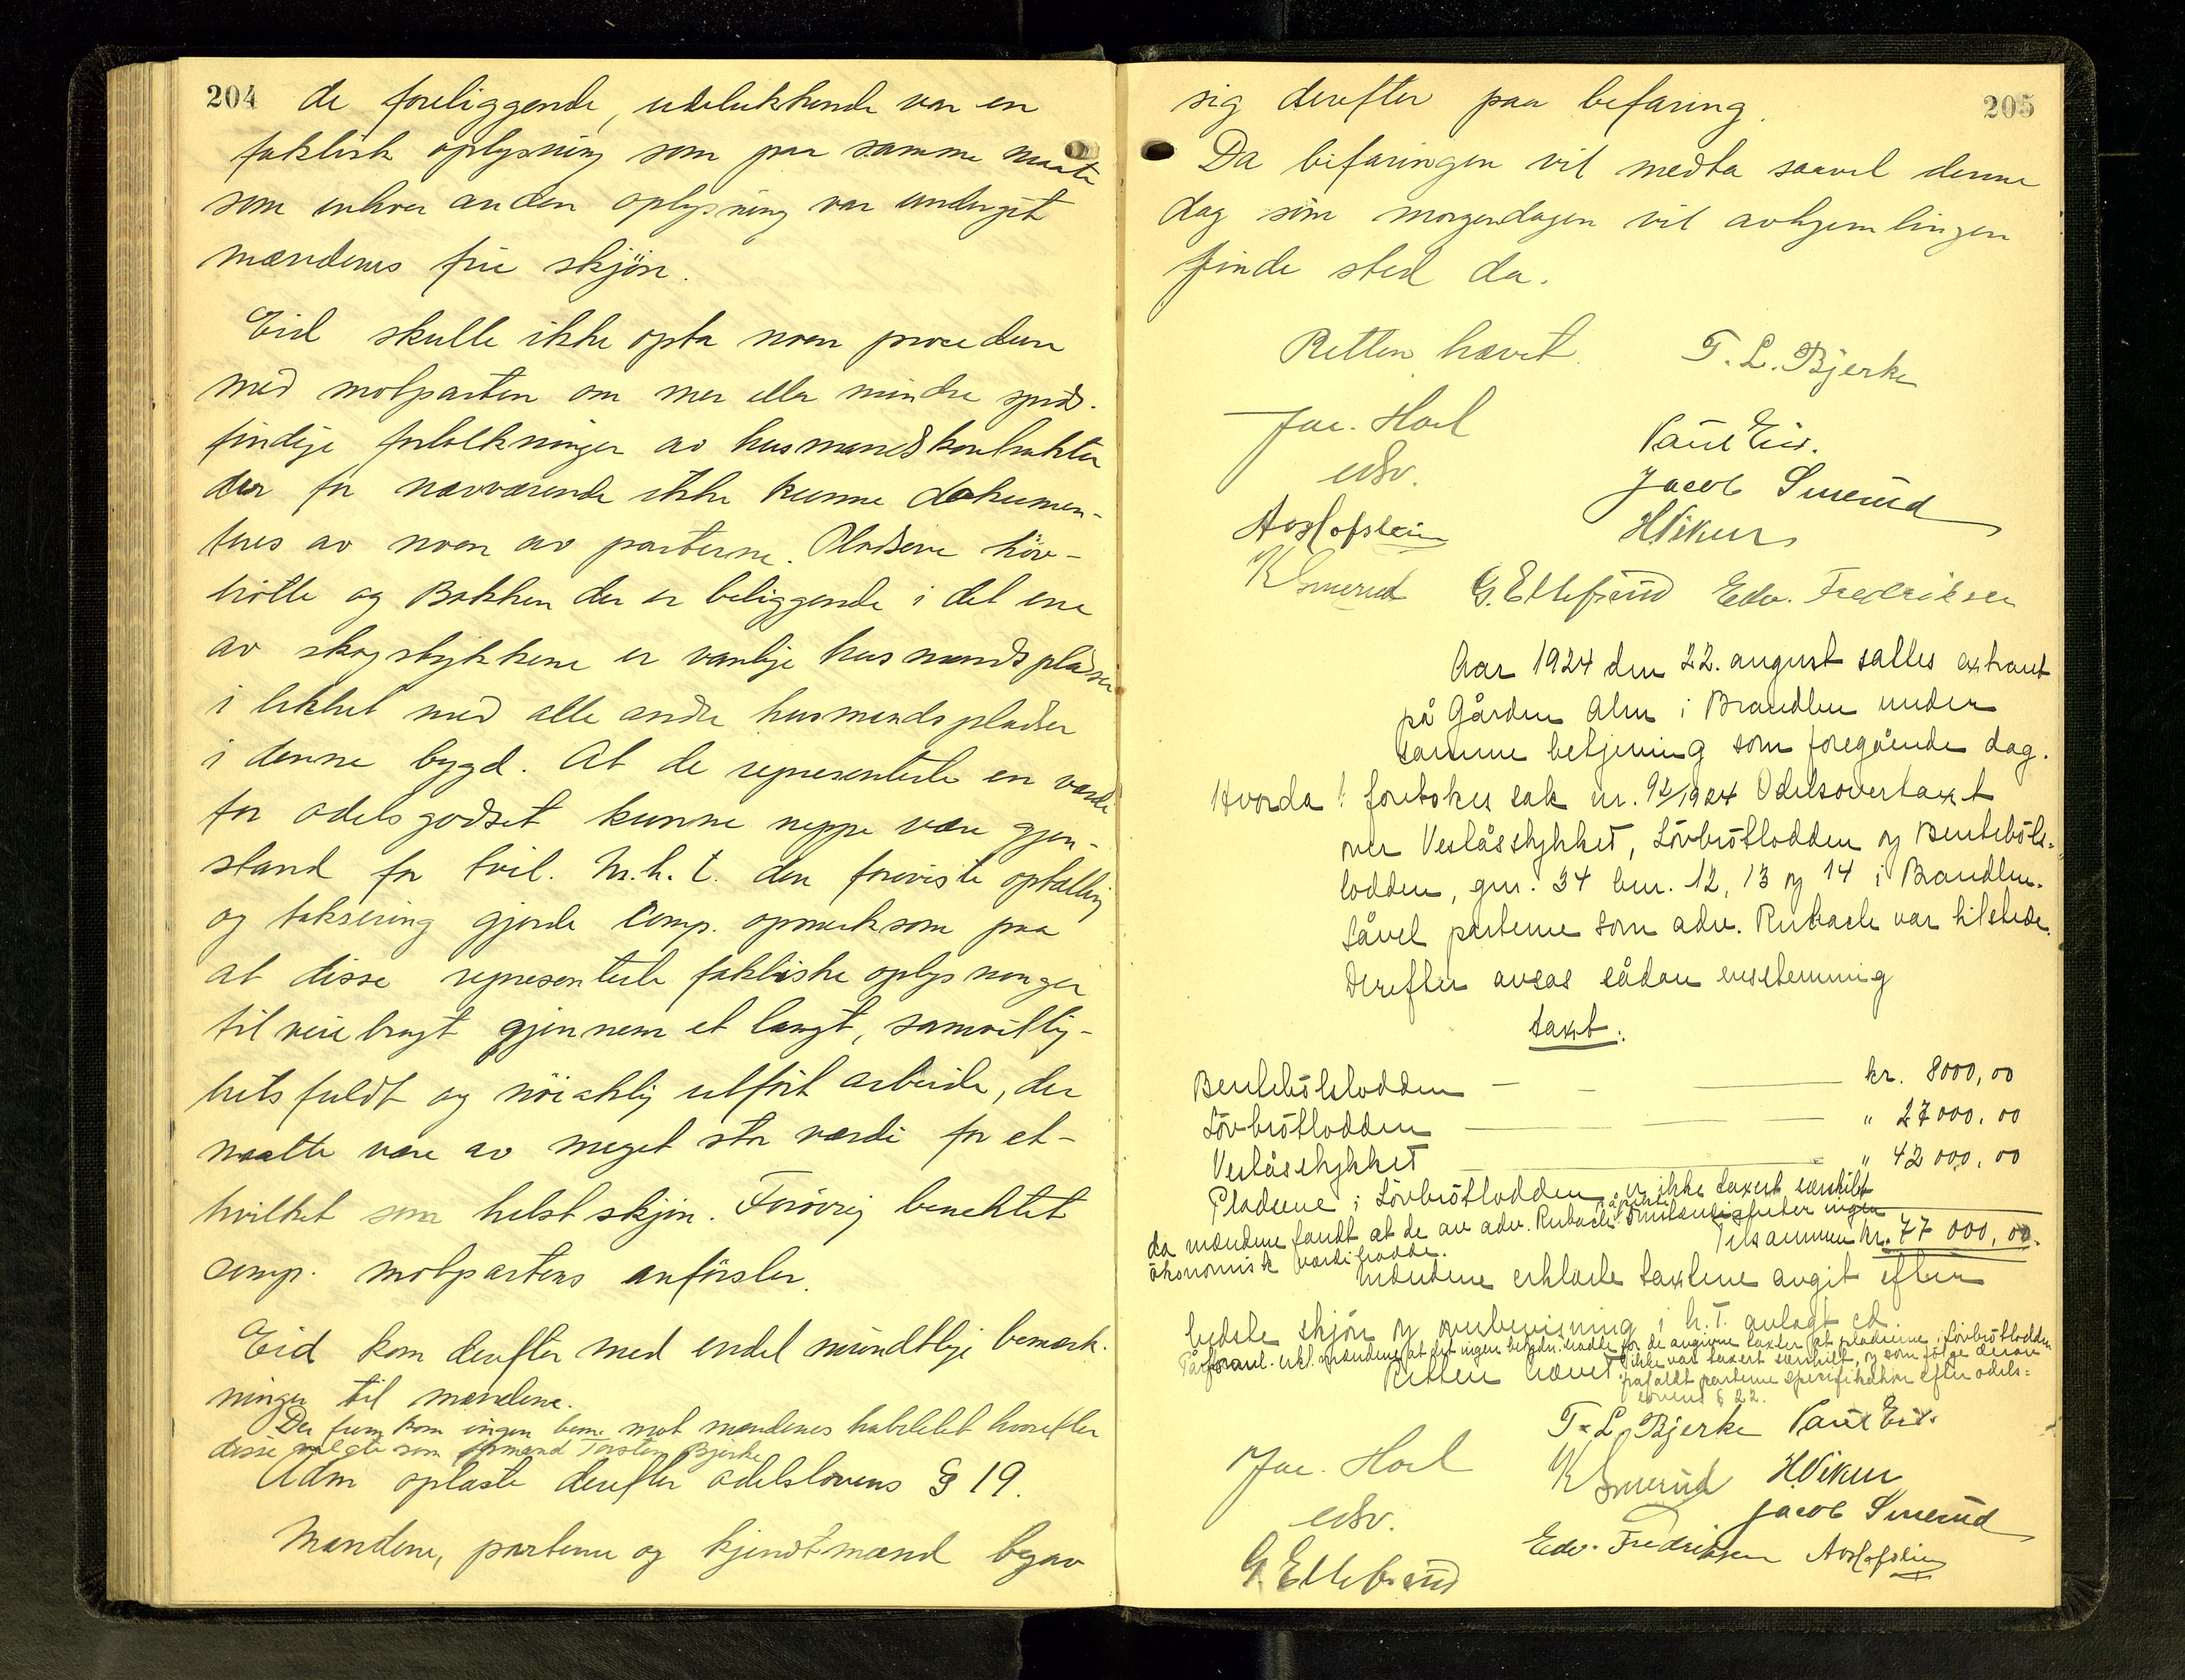 204 de foreliggende, udelukkende var en
faktisk oplysning som paa samme maate
som enhver anden oplysning var undergit
mændenes frie skjön.
Eid skulle ikke opta noen procedure
med motparten om mer eller mindre spids-
findige fortolkninger av husmandskontrakter
der for nærværende ikke kunne dokumen-
teres av noen av parterne. Pladsene Löv-
bråtte og Bakken der er beliggende i det ene
av skogstykkene er vanlige husmandspladser
i likhet med alle andre husmandspladser
i denne bygd. At de representerte en værdi
for odelsgodset kunne neppe være gjen-
stand for tvil. M.h.t. den foreviste optelling
og taksering gjorde Comp. opmerksom paa
at disse representerte faktiske oplysninger
tilveiebragt gjennem et langt, samvittig-
hetsfuldt og nöiaktig utfört arbeide, der
maatte være av meget stor værdi for et-
hvilket som helst skjön. Forövrig benektet
Comp. motpartens anförsler.
Eid kom derefter med endel mundtlige bemærk-
ninger til mændene.
Der frem kom ingen bem. mot mændenes habilitet hvorefter
disse valgte som formand Torsten Bjerke
Adm oplæste derefter odelslovens § 19.
Mændene, parterne og kjendtmænd begav
205
sig derefter paa befaring.
Da befaringen vil medta saavel denne
dag som morgendagen vil avhjemlingen
finde sted da.
Retten hævet. T. L. Bjerke
Jac. Hoel Paul Eid.
edsv. Jacob Smerud
A Hofslien H Viken
K Smerud G. Ellefsrud Edv. Fredriksen
Aar 1924 den 22. august sattes extraret
på Gården Alm i Brandbu under
samme betjening som foregående dag.
Hvorda: foretokes sak nr. 92/1924 Odelsovertaxt
over Veslåsstykket, Lövbrötlodden og Benteböls-
lodden, gnr. 34 bnr. 12, 13 og 14 i Brandbu.
Såvel parterne som adv. Rubach var tilstede.
Derefter avsas sådan enstemmig
taxt:
Bentebölslodden — — — kr. 8000,00
Lövbrötlodden — — " 27000,00
Veslåsstykket — " 42000,00
Pladsene i Lövbrötlodden er ikke taxert særskilt
da mændene fandt at de av adv. Rubach påpekte omstændigheter ingen
økonomisk værdi hadde. Tilsammen kr. 77 000,00.
Mændene erklærte taxtene avgit efter
bedste skjön og overbevisning i h.t. avlagt ed.
På foranl. erkl. mændene at det ingen betydn. hadde for de avgivne taxter at pladsene i Lövbrötlodden
ikke var taxert særskilt, og som følge derav
Retten hævet. frafaldt parterne spesifikation efter odels-
lovens § 22.
T. L. Bjerke Paul Eid.
Jac. Hoel K Smerud H Viken
edsv. Jacob Smerud
G. Ellefsrud Edv. Fredriksen A Hofslien